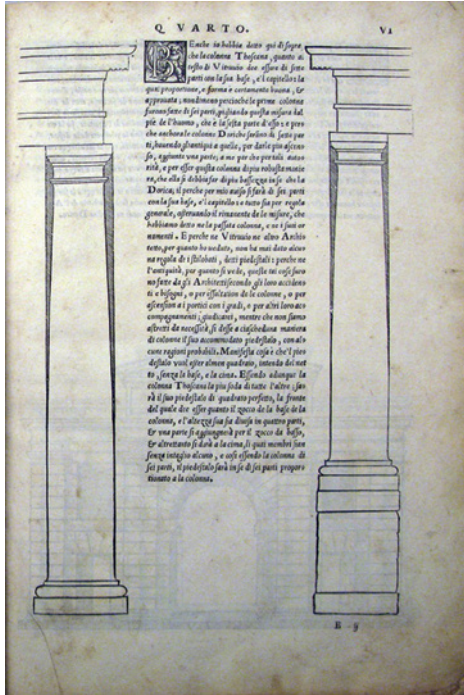 QVARTO. VI
BEnche io habbia detto qui di sopra
che la colonna Thoscana, quanto al
testo di Vitruuio dee essere di sette
parti con la sua base, e'l capitello: la
qual proportione, e forma è certamente buona, &
approuata; nondimeno percioche le prime colonne
furono fatte di sei parti, pigliando questa misura dal
piè de l'huomo, che è la sesta parte d'esso: e per-
che anchora le colonne Doriche si fecero di sette par-
ti, hauendo gli antiqui a quelle, per darle piu ascen-
so, aggiunto una parte; a me par che per tale autto
rità, e per esser questa colonna di piu robusta manie
ra, che ella si debbia far di piu bassezza in se che la
Dorica; il perche per mio auiso si farà di sei parti
con la sua base, e'l capitello: e tutto sia per regola
generale, osseruando il rimanente de le misure, che
habbiamo detto ne la passata colonna, e ne i suoi or
namenti. E perche ne Vitruuio ne altro Archi
tetto, per quanto ho ueduto, non ha mai dato alcu
na regola di i stilobati, detti piedestali: perche ne
l'antiquità, per quanto si vede, queste tai cose furo
no fatte da gli Architetti secondo gli loro acciden
ti e bisogni, o per essaltation de le colonne, o per
ascension a i portici con i gradi, e per altri loro ac
compagnamenti; giudicarei, mentre che non siamo
astretti da necessità, si desse a ciascheduna maniera
di colonne il suo accommodato piedestalo, con al-
cune ragioni probabili. Manifesta cosa è che'l pie
destalo vuol esser almen quadrato, intendo del net
to, senza la base, e la cima. Essendo adunque la
colonna Thoscana la piu soda di tutte l'altre; sa-
rà il suo piedestalo di quadrato perfetto, la fronte
del quale dee esser quanto il zocco de la base de la
colonna, e l'altezza sua sia diuisa in quattro parti,
& una parte si aggiungerà per il zocco da basso,
& altrettanto se darà a la cima, li quai membri sian
senza intaglio alcuno, e cosi essendo la colonna di
sei parti, il piedestalo sarà in se di sei parti propor
tionato a la colonna.